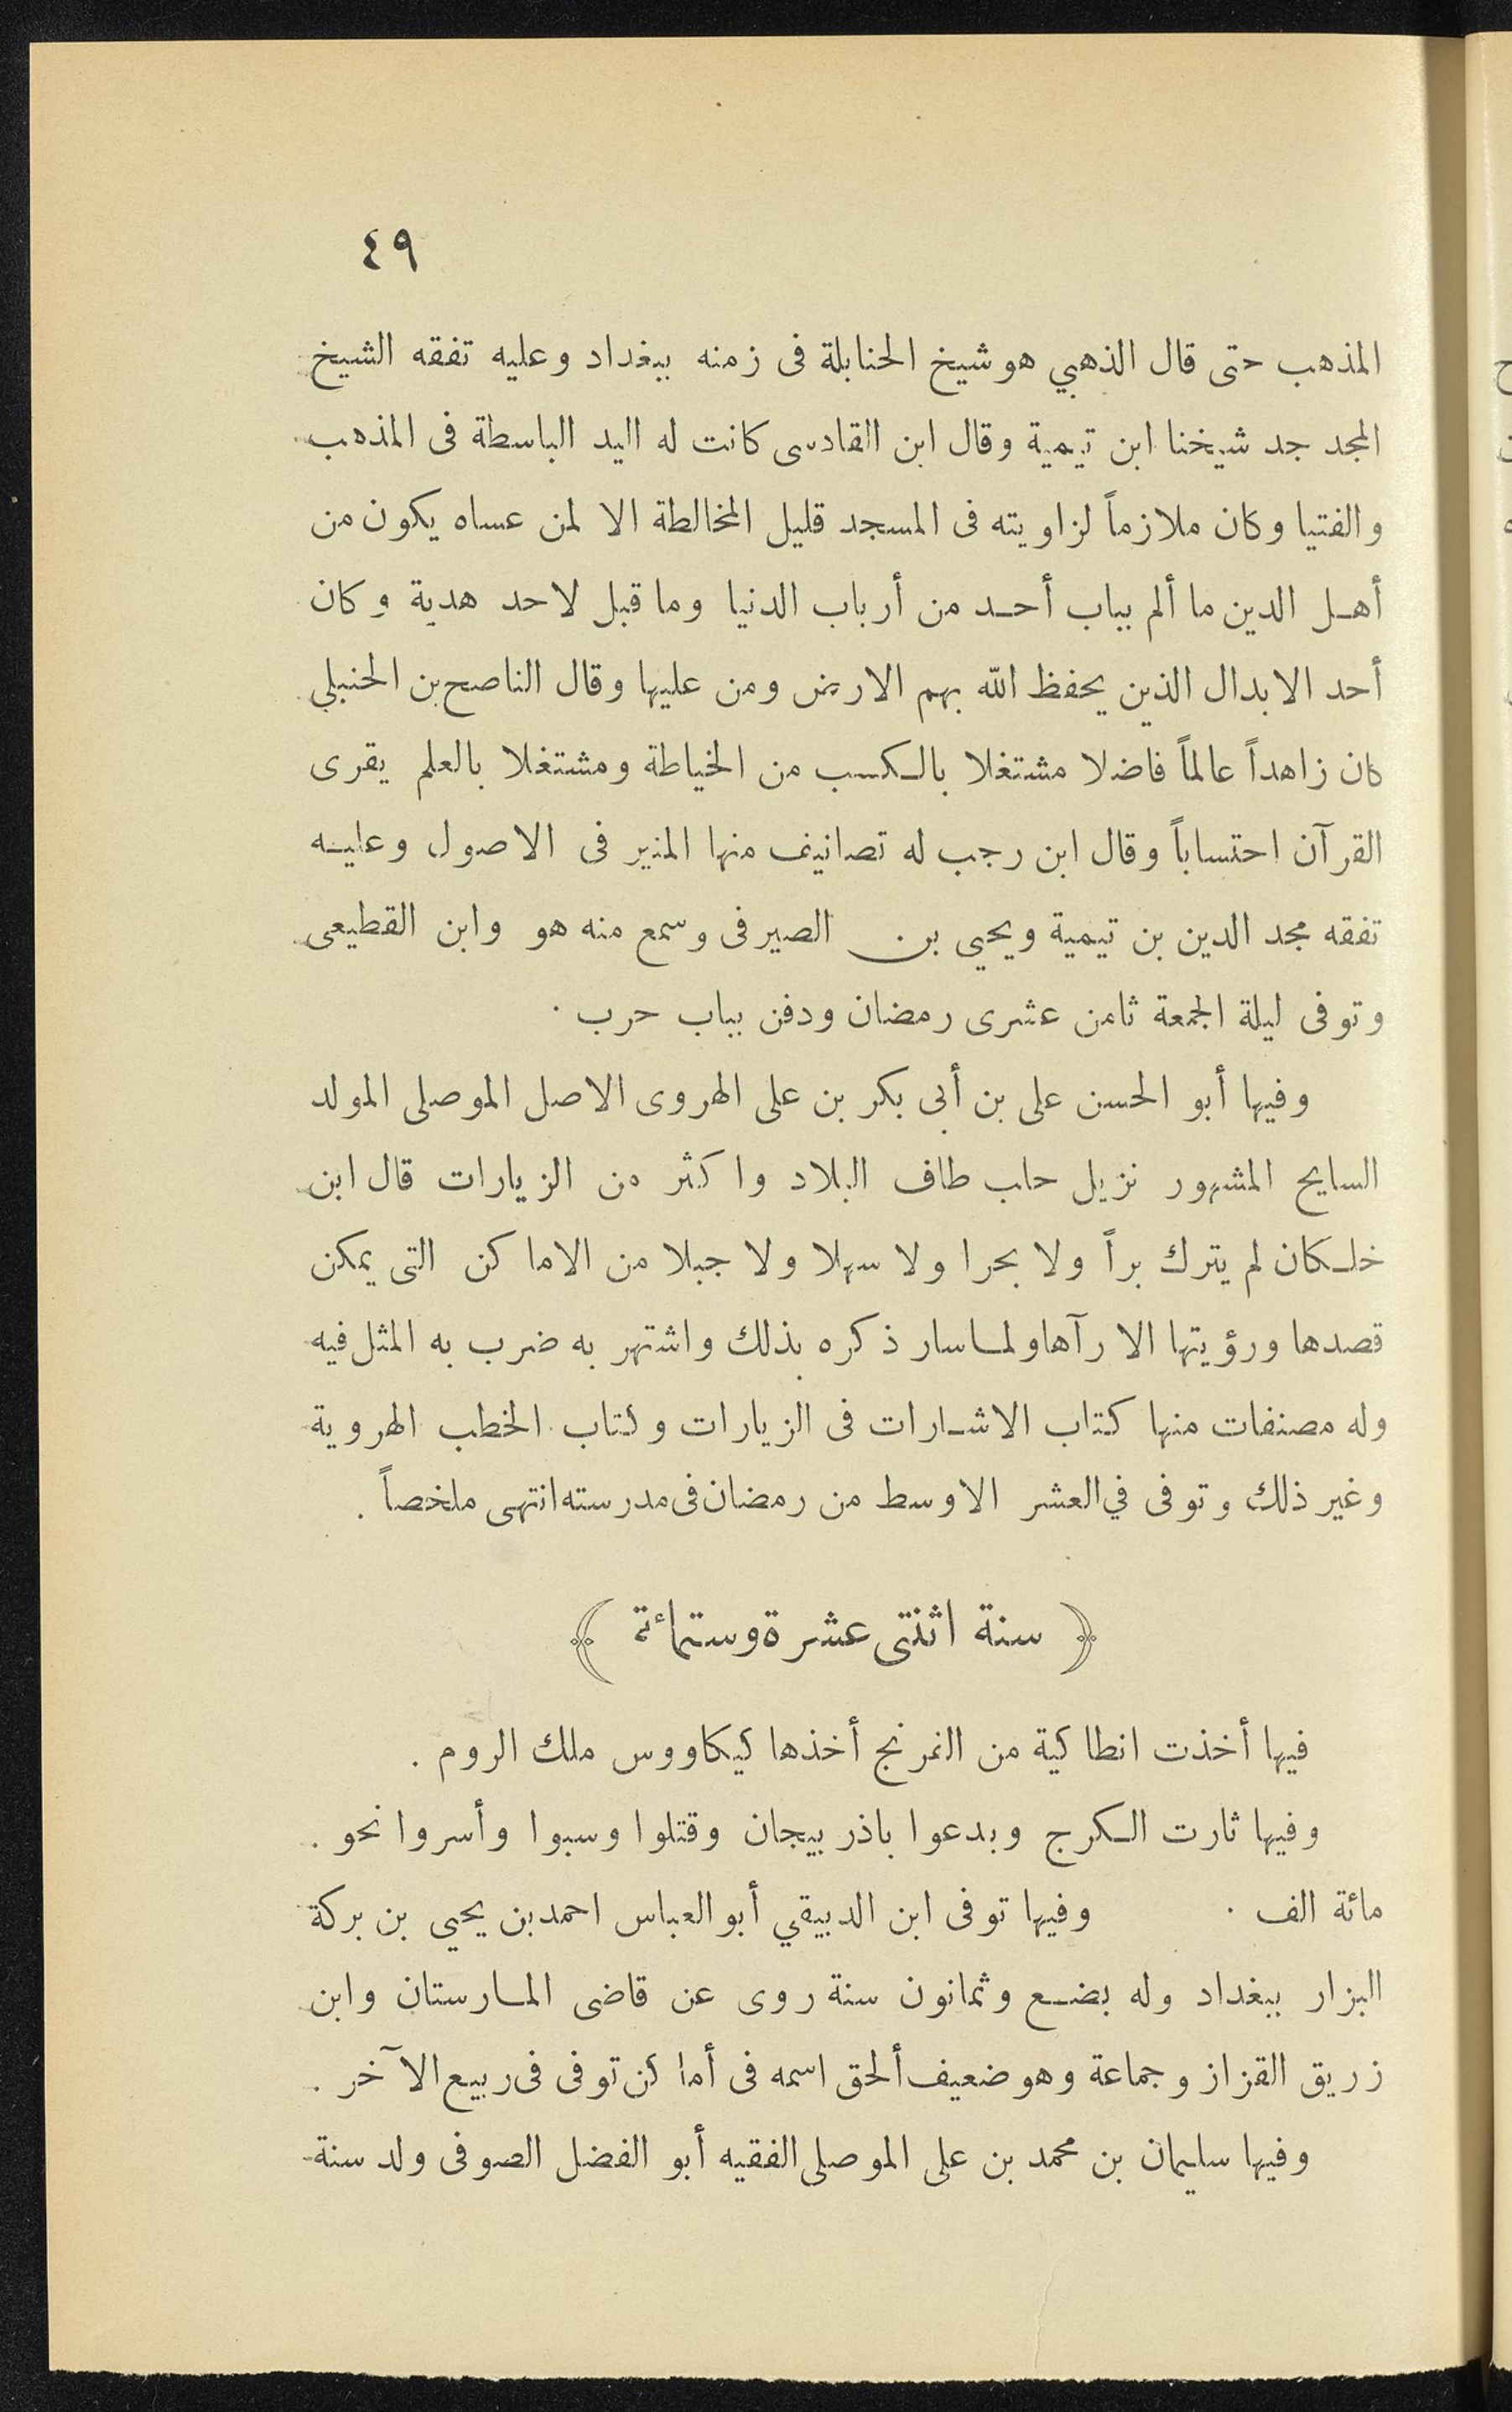 ٤٩
المذهب حتى قال الذهبي هو شيخ الحنابلة فى زمنه ببغداد وعليه تفقه الشيخ
المجد جد شيخنا ابن تيمية وقال ابن القادسى كانت له اليد الباسطة فى المذهب
والفتيا وكان ملازماً لزاويته فى المسجد قليل المخالطة الا لمن عساه يكون من
أهل الدين ما ألم بباب أحد من أرباب الدنيا وما قبل لاحد هدية وكان
أحد الابدال الذين يحفظ الله بهم الارض ومن عليها وقال الناصح بن الحنبلي
كان زاهداً عالماً فاضلا مشتغلا بالكسب من الخياطة ومشتغلا بالعلم يقرى
القرآن احتساباً وقال ابن رجب له تصانيف منها المنير فى الاصول وعليه
تفقه مجد الدين بن تيمية ويحيى بن الصيرفى وسمع منه هو وابن القطيعى
وتوفى ليلة الجمعة ثامن عشرى رمضان ودفن بباب حرب .
وفيها أبو الحسن على بن أبى بكر بن على الهروى الاصل الموصلى المولد
السايح المشهور نزيل حلب طاف البلاد واكثر من الزيارات قال ابن
خلكان لم يترك براً ولا بحرا ولا سهلا ولا جبلا من الاماكن التى يمكن
قصدها ورؤيتها الا رآها ولما سار ذكره بذلك واشتهر به ضرب به المثل فيه
وله مصنفات منها كتاب الاشارات فى الزيارات وكتاب الخطب الهروية
وغير ذلك وتوفى في العشر الاوسط من رمضان فى مدرسته انتهى ملخصاً .
﴿ سنة اثنتى عشرة وستمائة ﴾
فيها أخذت انطاكية من الفرنج أخذها كيكاووس ملك الروم .
وفيها ثارت الكرج وبدعوا باذربيجان وقتلوا وسبوا وأسروا نحو .
مائة الف . وفيها توفى ابن الدبيقي أبو العباس احمد بن يحيى بن بركة
البزار ببغداد وله بضع وثمانون سنة روى عن قاضى المارستان وابن
زريق القزاز وجماعة وهو ضعيف ألحق اسمه فى أماكن توفى فى ربيع الآخر .
وفيها سليمان بن محمد بن على الموصلى الفقيه أبو الفضل الصوفى ولد سنة